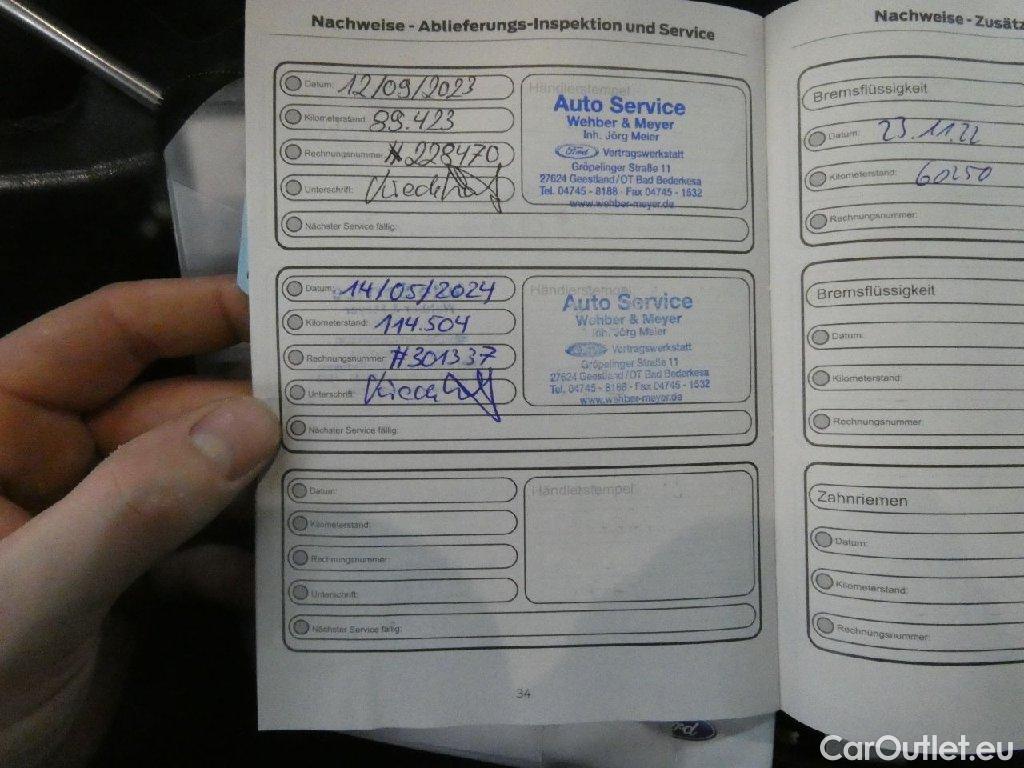 Nachweise - Ablieferungs-Inspektion und Service
Datum: 12/09/2023
Kilometerstand: 89.423
Rechnungsnummer: #228470
Unterschrift:
Nächster Service fällig:
Händlerstempel
Auto Service
Wehber & Meyer
Inh. Jörg Meier
Ford Vertragswerkstatt
Gröpelinger Straße 11
27624 Geestland/OT Bad Bederkesa
Tel. 04745 - 8188 · Fax 04745 - 1532
www.wehber-meyer.de
Datum: 14/05/2024
Kilometerstand: 114.504
Rechnungsnummer: #301337
Unterschrift:
Nächster Service fällig:
Händlerstempel
Auto Service
Wehber & Meyer
Inh. Jörg Meier
Vertragswerkstatt
Gröpelinger Straße 11
27624 Geestland/OT Bad Bederkesa
Tel. 04745 - 8188 · Fax 04745 - 1532
www.wehber-meyer.de
Datum:
Kilometerstand:
Rechnungsnummer:
Unterschrift:
Nächster Service fällig:
Händlerstempel
34
Nachweise - Zusätz
Bremsflüssigkeit
Datum: 23.11.22
Kilometerstand: 60250
Rechnungsnummer:
Bremsflüssigkeit
Datum:
Kilometerstand:
Rechnungsnummer:
Zahnriemen
Datum:
Kilometerstand:
Rechnungsnummer:
CarOutlet.eu